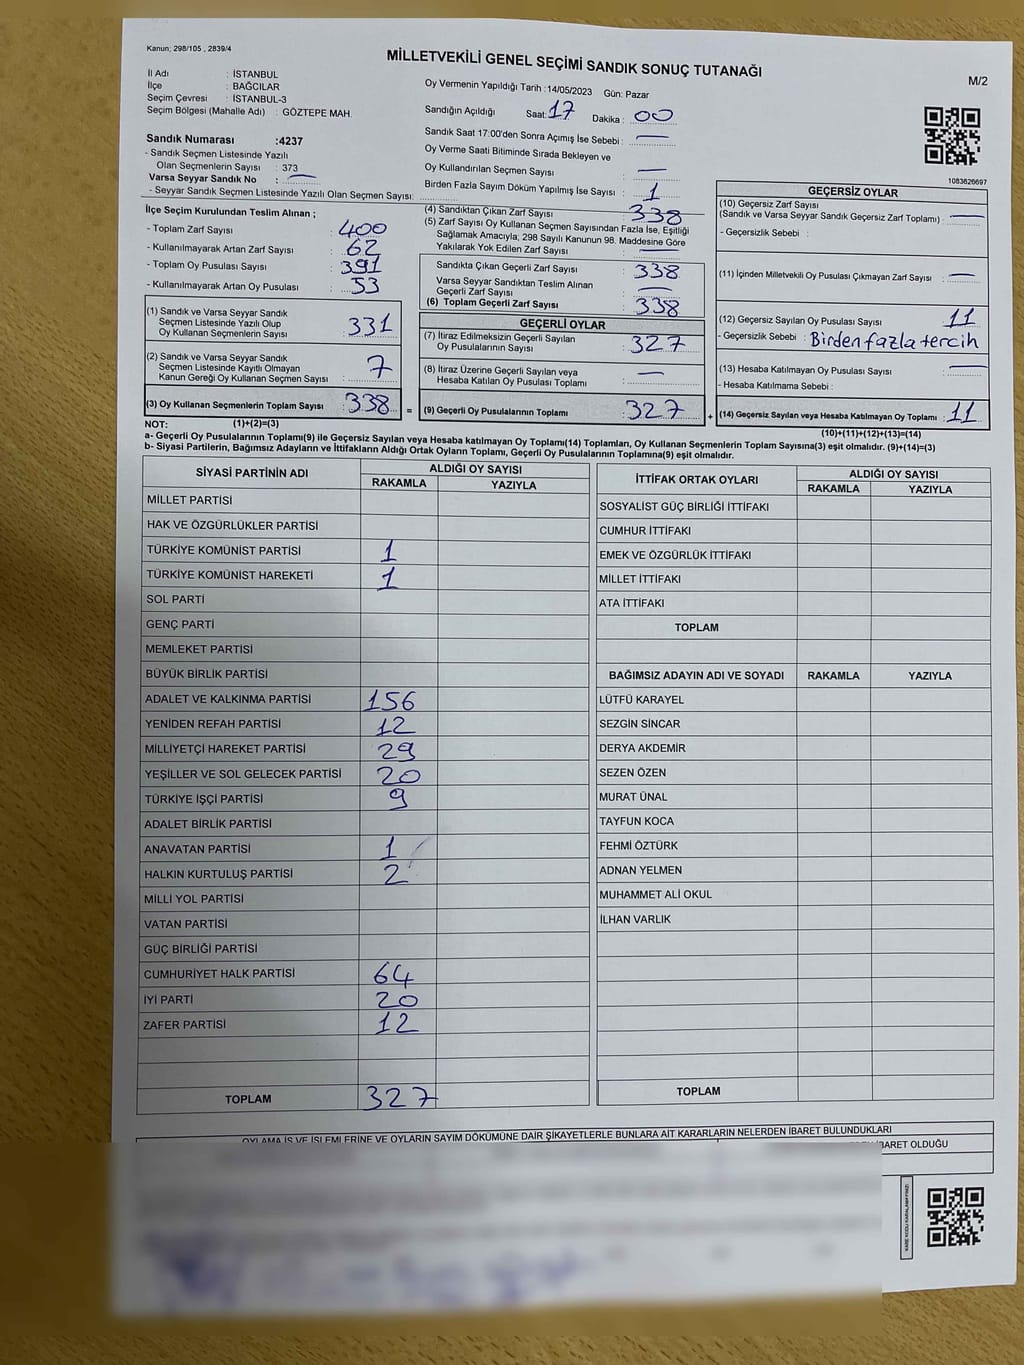 Kanun; 298/105 , 2839/4
MİLLETVEKİLİ GENEL SEÇİMİ SANDIK SONUÇ TUTANAĞI
M/2
İl Adı : İSTANBUL
İlçe : BAĞCILAR
Seçim Çevresi : İSTANBUL-3
Seçim Bölgesi (Mahalle Adı) : GÖZTEPE MAH.
Sandık Numarası :4237
- Sandık Seçmen Listesinde Yazılı
Olan Seçmenlerin Sayısı : 373
Varsa Seyyar Sandık No : —
- Seyyar Sandık Seçmen Listesinde Yazılı Olan Seçmen Sayısı:
Oy Vermenin Yapıldığı Tarih :14/05/2023 Gün: Pazar
Sandığın Açıldığı Saat: 17 Dakika : 00
Sandık Saat 17:00'den Sonra Açımış İse Sebebi : —
Oy Verme Saati Bitiminde Sırada Bekleyen ve
Oy Kullandırılan Seçmen Sayısı : —
Birden Fazla Sayım Döküm Yapılmış İse Sayısı : 1
1083626697
İlçe Seçim Kurulundan Teslim Alınan ;
- Toplam Zarf Sayısı : 400
- Kullanılmayarak Artan Zarf Sayısı : 62
- Toplam Oy Pusulası Sayısı : 391
- Kullanılmayarak Artan Oy Pusulası : 53
(1) Sandık ve Varsa Seyyar Sandık
Seçmen Listesinde Yazılı Olup
Oy Kullanan Seçmenlerin Sayısı : 331
(2) Sandık ve Varsa Seyyar Sandık
Seçmen Listesinde Kayıtlı Olmayan
Kanun Gereği Oy Kullanan Seçmen Sayısı : 7
(3) Oy Kullanan Seçmenlerin Toplam Sayısı : 338
(1)+(2)=(3)
(4) Sandıktan Çıkan Zarf Sayısı : 338
(5) Zarf Sayısı Oy Kullanan Seçmen Sayısından Fazla İse, Eşitliği
Sağlamak Amacıyla, 298 Sayılı Kanunun 98. Maddesine Göre
Yakılarak Yok Edilen Zarf Sayısı : —
Sandıkta Çıkan Geçerli Zarf Sayısı : 338
Varsa Seyyar Sandıktan Teslim Alınan
Geçerli Zarf Sayısı : —
(6) Toplam Geçerli Zarf Sayısı : 338
GEÇERLİ OYLAR
(7) İtiraz Edilmeksizin Geçerli Sayılan
Oy Pusulalarının Sayısı : 327
(8) İtiraz Üzerine Geçerli Sayılan veya
Hesaba Katılan Oy Pusulası Toplamı : —
= (9) Geçerli Oy Pusulalarının Toplamı : 327
GEÇERSİZ OYLAR
(10) Geçersiz Zarf Sayısı
(Sandık ve Varsa Seyyar Sandık Geçersiz Zarf Toplamı) : —
- Geçersizlik Sebebi :
(11) İçinden Milletvekili Oy Pusulası Çıkmayan Zarf Sayısı : —
(12) Geçersiz Sayılan Oy Pusulası Sayısı : 11
- Geçersizlik Sebebi : Birden fazla tercih
(13) Hesaba Katılmayan Oy Pusulası Sayısı : —
- Hesaba Katılmama Sebebi :
+ (14) Geçersiz Sayılan veya Hesaba Katılmayan Oy Toplamı : 11
(10)+(11)+(12)+(13)=(14)
NOT:
a- Geçerli Oy Pusulalarının Toplamı(9) ile Geçersiz Sayılan veya Hesaba katılmayan Oy Toplamı(14) Toplamları, Oy Kullanan Seçmenlerin Toplam Sayısına(3) eşit olmalıdır. (9)+(14)=(3)
b- Siyasi Partilerin, Bağımsız Adayların ve İttifakların Aldığı Ortak Oyların Toplamı, Geçerli Oy Pusulalarının Toplamına(9) eşit olmalıdır.
SİYASİ PARTİNİN ADI ALDIĞI OY SAYISI
RAKAMLA YAZIYLA
MİLLET PARTİSİ
HAK VE ÖZGÜRLÜKLER PARTİSİ
TÜRKİYE KOMÜNİST PARTİSİ 1
TÜRKİYE KOMÜNİST HAREKETİ 1
SOL PARTİ
GENÇ PARTİ
MEMLEKET PARTİSİ
BÜYÜK BİRLİK PARTİSİ
ADALET VE KALKINMA PARTİSİ 156
YENİDEN REFAH PARTİSİ 12
MİLLİYETÇİ HAREKET PARTİSİ 29
YEŞİLLER VE SOL GELECEK PARTİSİ 20
TÜRKİYE İŞÇİ PARTİSİ 9
ADALET BİRLİK PARTİSİ
ANAVATAN PARTİSİ 1
HALKIN KURTULUŞ PARTİSİ 2
MİLLİ YOL PARTİSİ
VATAN PARTİSİ
GÜÇ BİRLİĞİ PARTİSİ
CUMHURİYET HALK PARTİSİ 64
İYİ PARTİ 20
ZAFER PARTİSİ 12
TOPLAM 327
İTTİFAK ORTAK OYLARI ALDIĞI OY SAYISI
RAKAMLA YAZIYLA
SOSYALİST GÜÇ BİRLİĞİ İTTİFAKI
CUMHUR İTTİFAKI
EMEK VE ÖZGÜRLÜK İTTİFAKI
MİLLET İTTİFAKI
ATA İTTİFAKI
TOPLAM
BAĞIMSIZ ADAYIN ADI VE SOYADI RAKAMLA YAZIYLA
LÜTFÜ KARAYEL
SEZGİN SİNCAR
DERYA AKDEMİR
SEZEN ÖZEN
MURAT ÜNAL
TAYFUN KOCA
FEHMİ ÖZTÜRK
ADNAN YELMEN
MUHAMMET ALİ OKUL
İLHAN VARLIK
TOPLAM
OYLAMA İŞ VE İŞLEMLERİNE VE OYLARIN SAYIM DÖKÜMÜNE DAİR ŞİKAYETLERLE BUNLARA AİT KARARLARIN NELERDEN İBARET BULUNDUKLARI
İBARET OLDUĞU